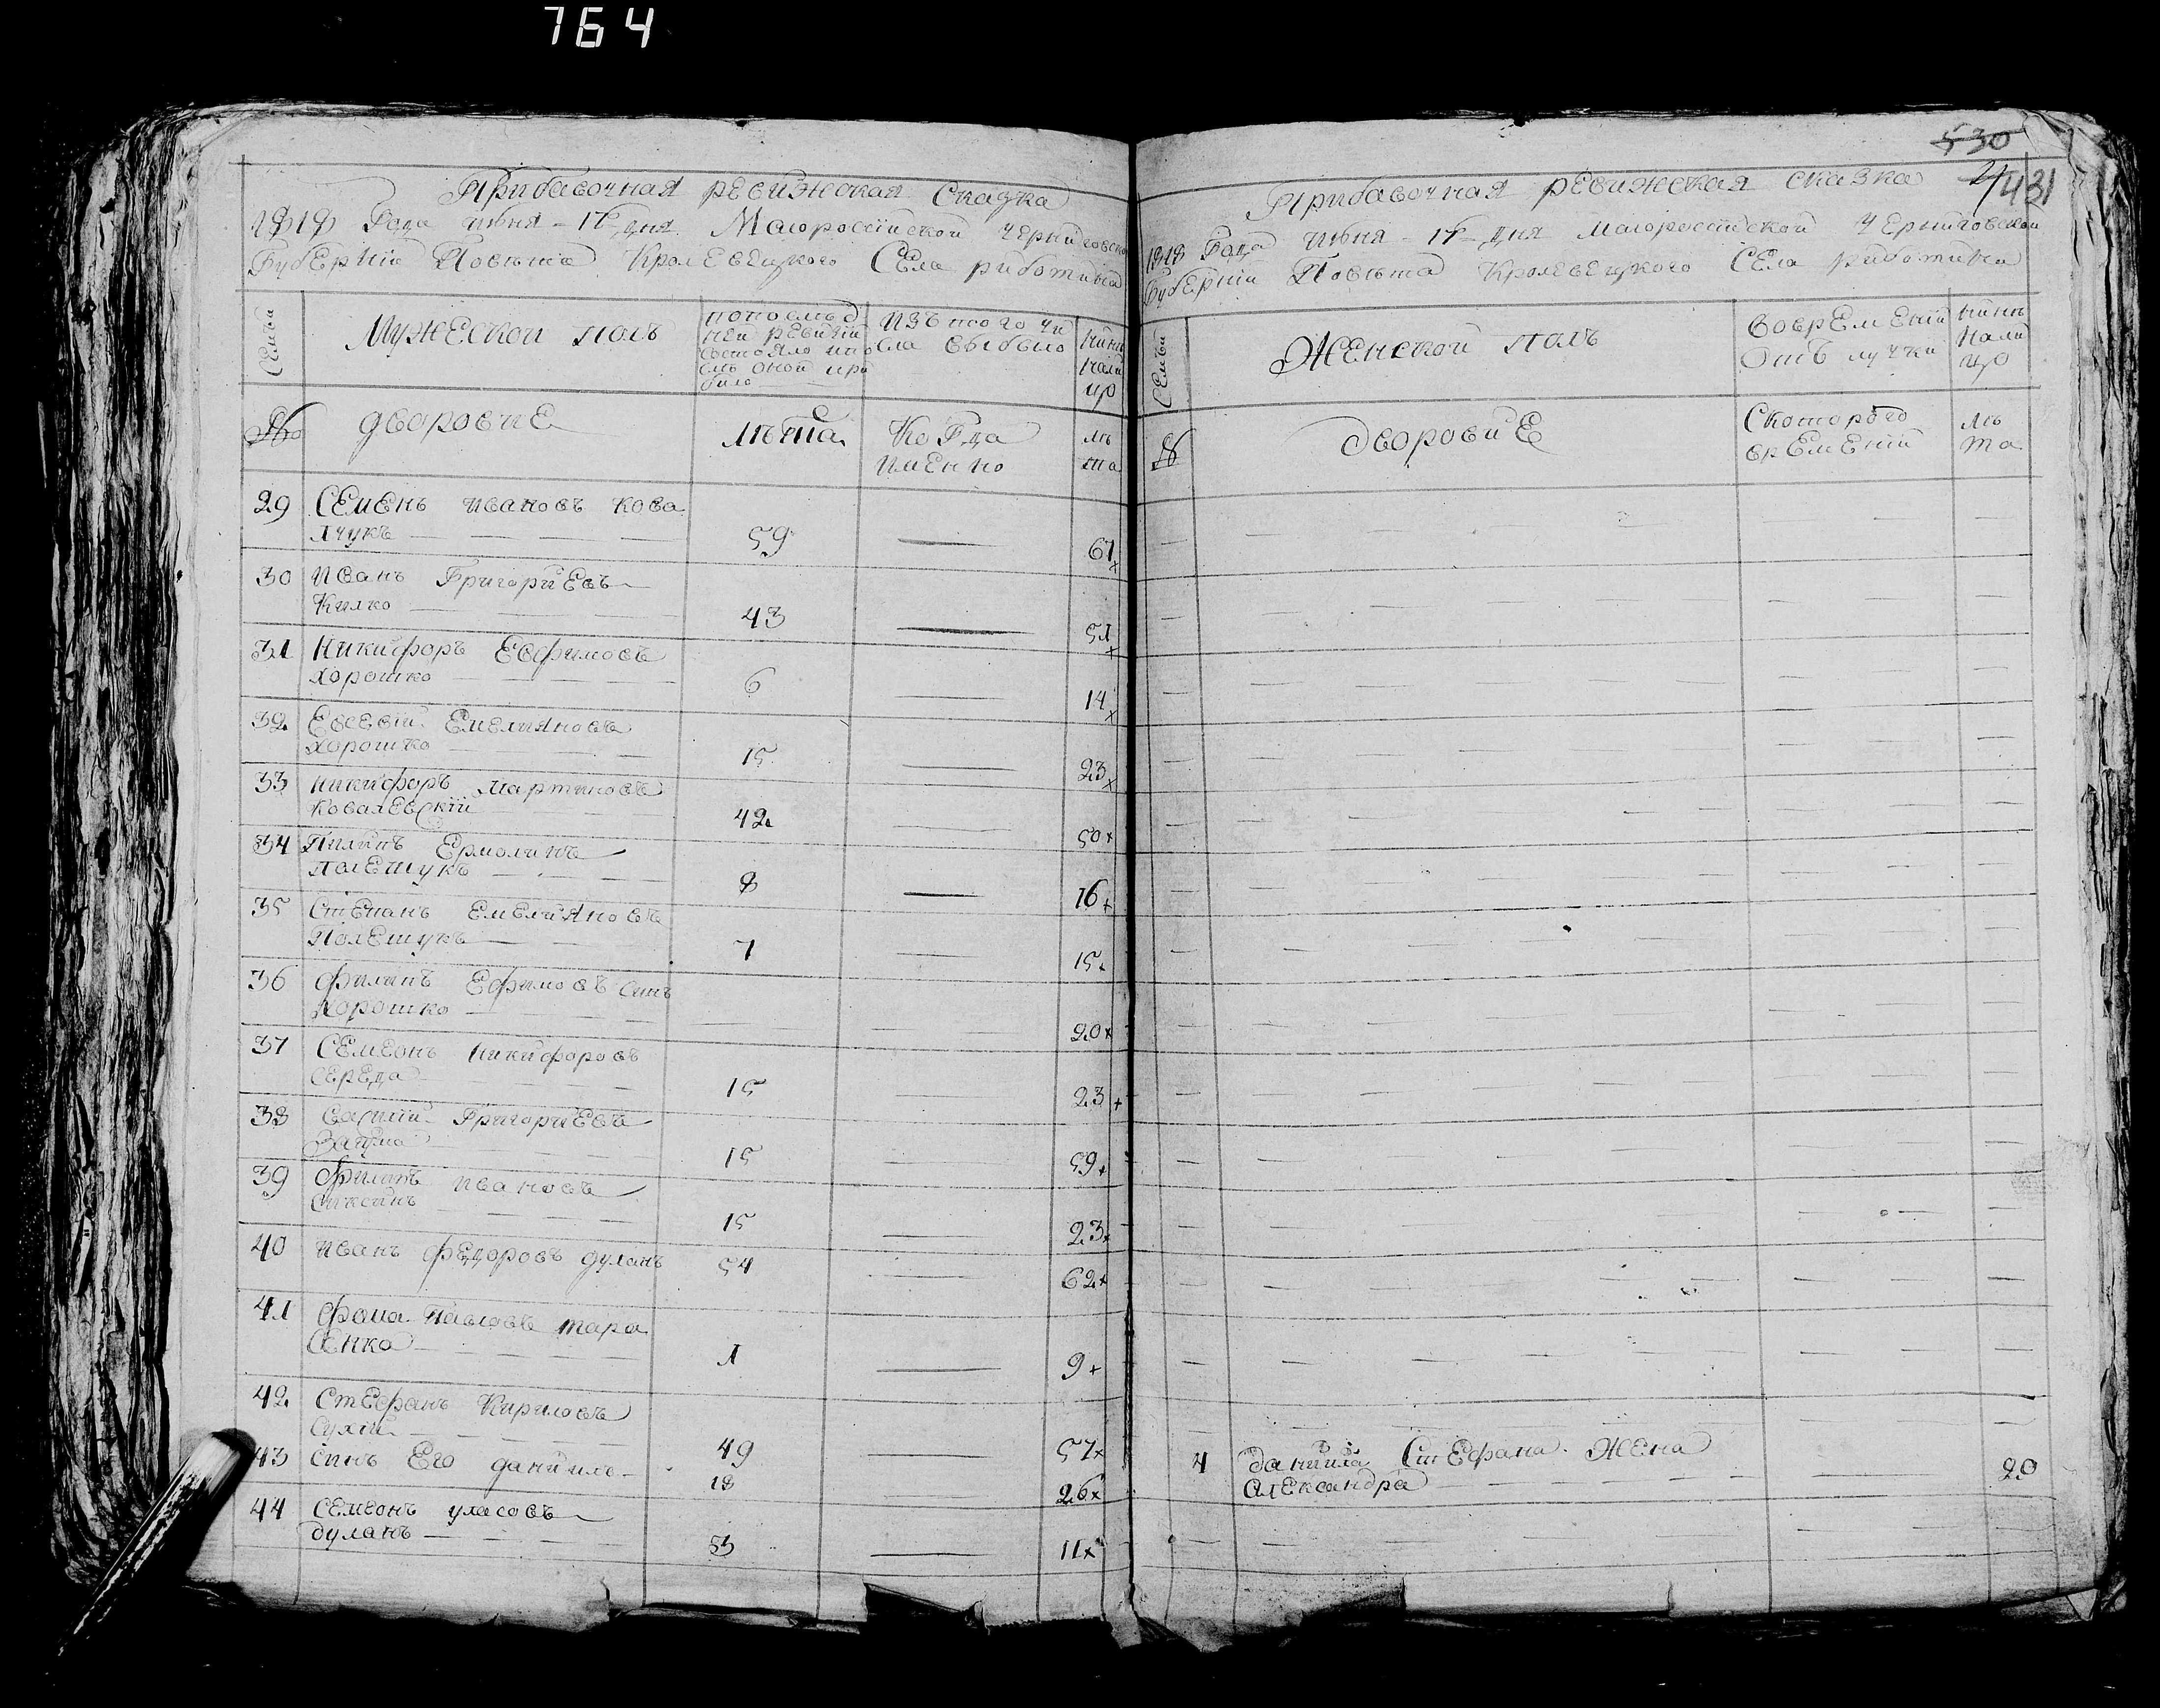 764
Прибавочная ревижская Сказка
1818 Года июня - 17 дня Малоросiйской Черниговской
Губернiи Повѣта Кролевецкого Села риботина
Семьи
Мужеской полъ
попослѣд
ней ревизiи
состояло ипо
слѣ оной при
било
Изъ того чи
сла выбыло
нинѣ
нали
цо
№
дворовие
лѣта
Когда
именно
лѣ
та
29 Семенъ Ивановъ кова
лчукъ 59 67
30 Иванъ Григорiевъ
Килко 43 51
31 Никифоръ Евфимовъ
Хорошко 6 14
32 Евсевiй Емелияновъ
Хорошко 15 23
33 Никифоръ Мартиновъ
Ковалевскiй 42 50
34 Пилипъ Ермолинъ
полешукъ 8 16
35 Степанъ Емелияновъ
Полешукъ 7 15
36 Филипъ Ефимовъ синъ
Хорошко 20
37 Семеонъ Никифоровъ
Середа 15 23
38 Григорiевъ
15 59
39 Филипъ Ивановъ
15 23
40 Иванъ Федоровъ дуланъ 54 62
41 Фома Павловъ тара
сенко 1 9
42 Стефанъ Кириловъ
Сухiй 49 57
43 Синъ Его данiилъ 18 26
44 Семеонъ уласовъ
дуланъ 3 11
530
431
Прибавочная ревижская сказка
1818 Года июня - 17 дня Малоросiйской Черниговской
Губернiи Повѣта Кролевецкого Села риботина
Семьи
Женской полъ
вовремений
отъ лучки
нинѣ
нали
цо
№
Дворовие
Скоторого
времений
лѣ
та
4 данiила Стефана Жена
Александра 20